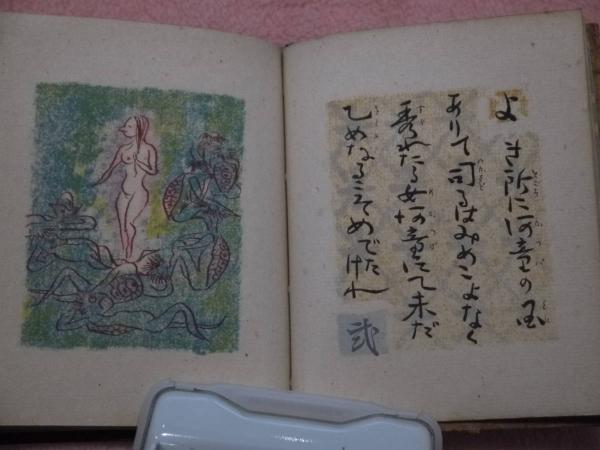 よき所に河童の国
ありて司るはみめこよなく
秀れたる女河童にて未だ
乙めなるこそめでたけれ
弐